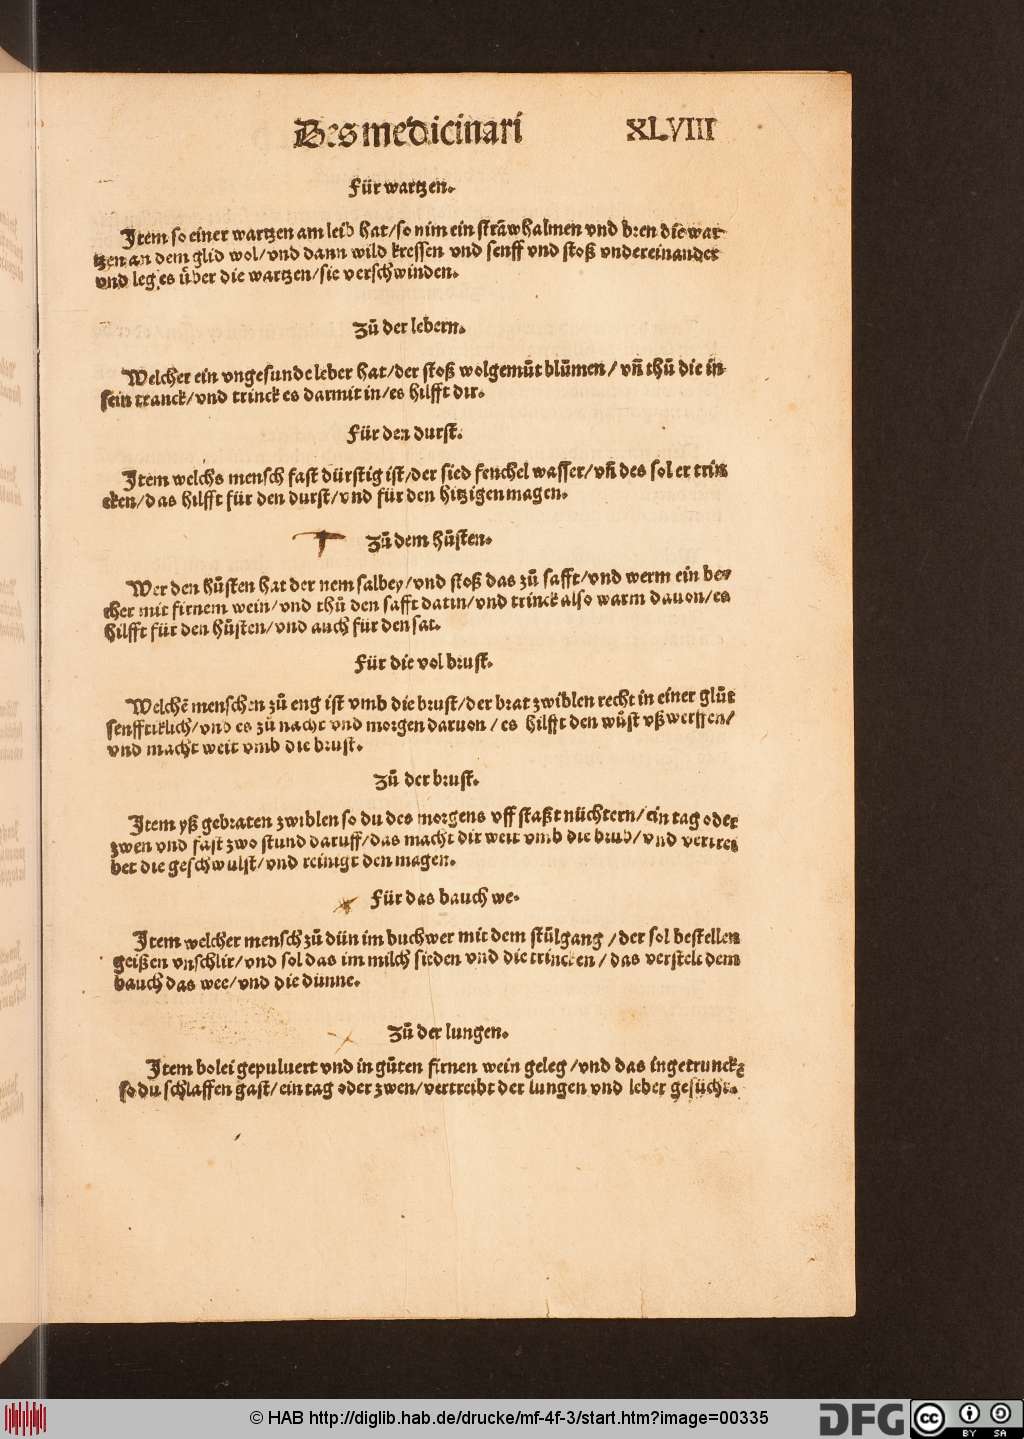 Des medicinari XLVIII
Für wartzen.
Item so einer wartzen am leib hat/so nim ein strāwhalmen vnd bren die war-
tzen an dem glid wol/vnd dann wild kressen vnd senff vnd stoß vndereinander
vnd leg es über die wartzen/sie verschwinden.
Zů der lebern.
Welcher ein vngesunde leber hat/der stoß wolgemůt blůmen/vñ thů die in
sein tranck/vnd trinck es darmit in/es hilfft dir.
Für den durst.
Item welchs mensch fast dürstig ist/der sied fenchel wasser/vñ des sol er trin
cken/das hilfft für den durst/vnd für den hitzigen magen.
Zů dem hůsten.
Wer den hůsten hat der nem salbey/vnd stoß das zů safft/vnd werm ein be-
cher mit firnem wein/vnd thů den safft darin/vnd trinck also warm dauon/es
hilfft für den hůsten/vnd auch für den sat.
Für die vol brust.
Welchē menschen zů eng ist vmb die brust/der brat zwiblen recht in einer glůt
senfftiklich/vnd es zů nacht vnd morgen daruon/es hilfft den wůst vßwerffen/
vnd macht weit vmb die brust.
Zů der brust.
Item yß gebraten zwiblen so du des morgens vff staßt nüchtern/ein tag oder
zwen vnd fast zwo stund daruff/das macht dir weit vmb die brust/vnd vertrei
bet die geschwulst/vnd reinigt den magen.
Für das bauch we.
Item welcher mensch zů dün im buch wer mit dem stůlgang/der sol bestellen
geißen vnschlit/vnd sol das im milch sieden vnd die trincken/das verstelt dem
bauch das wee/vnd die dünne.
Zů der lungen.
Item bolei gepuluert vnd in gůten firnen wein geleg/vnd das ingetrunckē
so du schlaffen gast/ein tag oder zwen/vertreibt der lungen vnd leber gesücht.
© HAB http://diglib.hab.de/drucke/mf-4f-3/start.htm?image=00335
DFG
cc BY SA